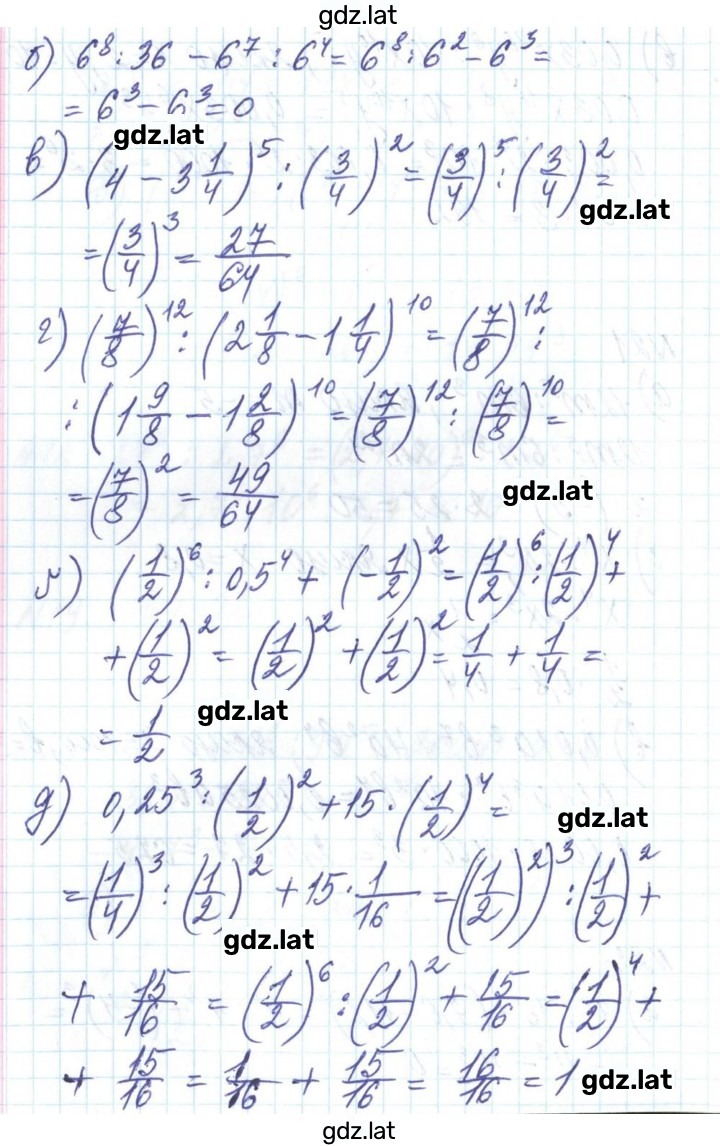 gdz.lat
б) 6⁸ : 36 − 6⁷ : 6⁴ = 6⁸ : 6² − 6³ =
= 6³ − 6³ = 0
gdz.lat
в) (4 − 3 1/4)⁵ : (3/4)² = (3/4)⁵ : (3/4)² =
gdz.lat
= (3/4)³ = 27/64
г) (7/8)¹² : (2 1/8 − 1 1/4)¹⁰ = (7/8)¹² :
: (1 9/8 − 1 2/8)¹⁰ = (7/8)¹² : (7/8)¹⁰ =
= (7/8)² = 49/64
gdz.lat
(1/2)⁶ : 0,5⁴ + (−1/2)² = (1/2)⁶ : (1/2)⁴ +
+ (1/2)² = (1/2)² + (1/2)² = 1/4 + 1/4 =
gdz.lat
= 1/2
д) 0,25³ : (1/2)² + 15 · (1/2)⁴ =
gdz.lat
= (1/4)³ : (1/2)² + 15 · 1/16 = ((1/2)²)³ : (1/2)² +
gdz.lat
+ 15/16 = (1/2)⁶ : (1/2)² + 15/16 = (1/2)⁴ +
+ 15/16 = 1/16 + 15/16 = 16/16 = 1
gdz.lat
gdz.lat